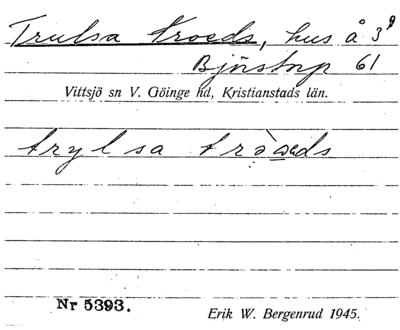 Trulsa Troeds, hus å 3⁹
Björstorp 61
Vittsjö sn V. Göinge hd, Kristianstads län.
trylsa trò̀əds
Nr 5393.
Erik W. Bergenrud 1945.